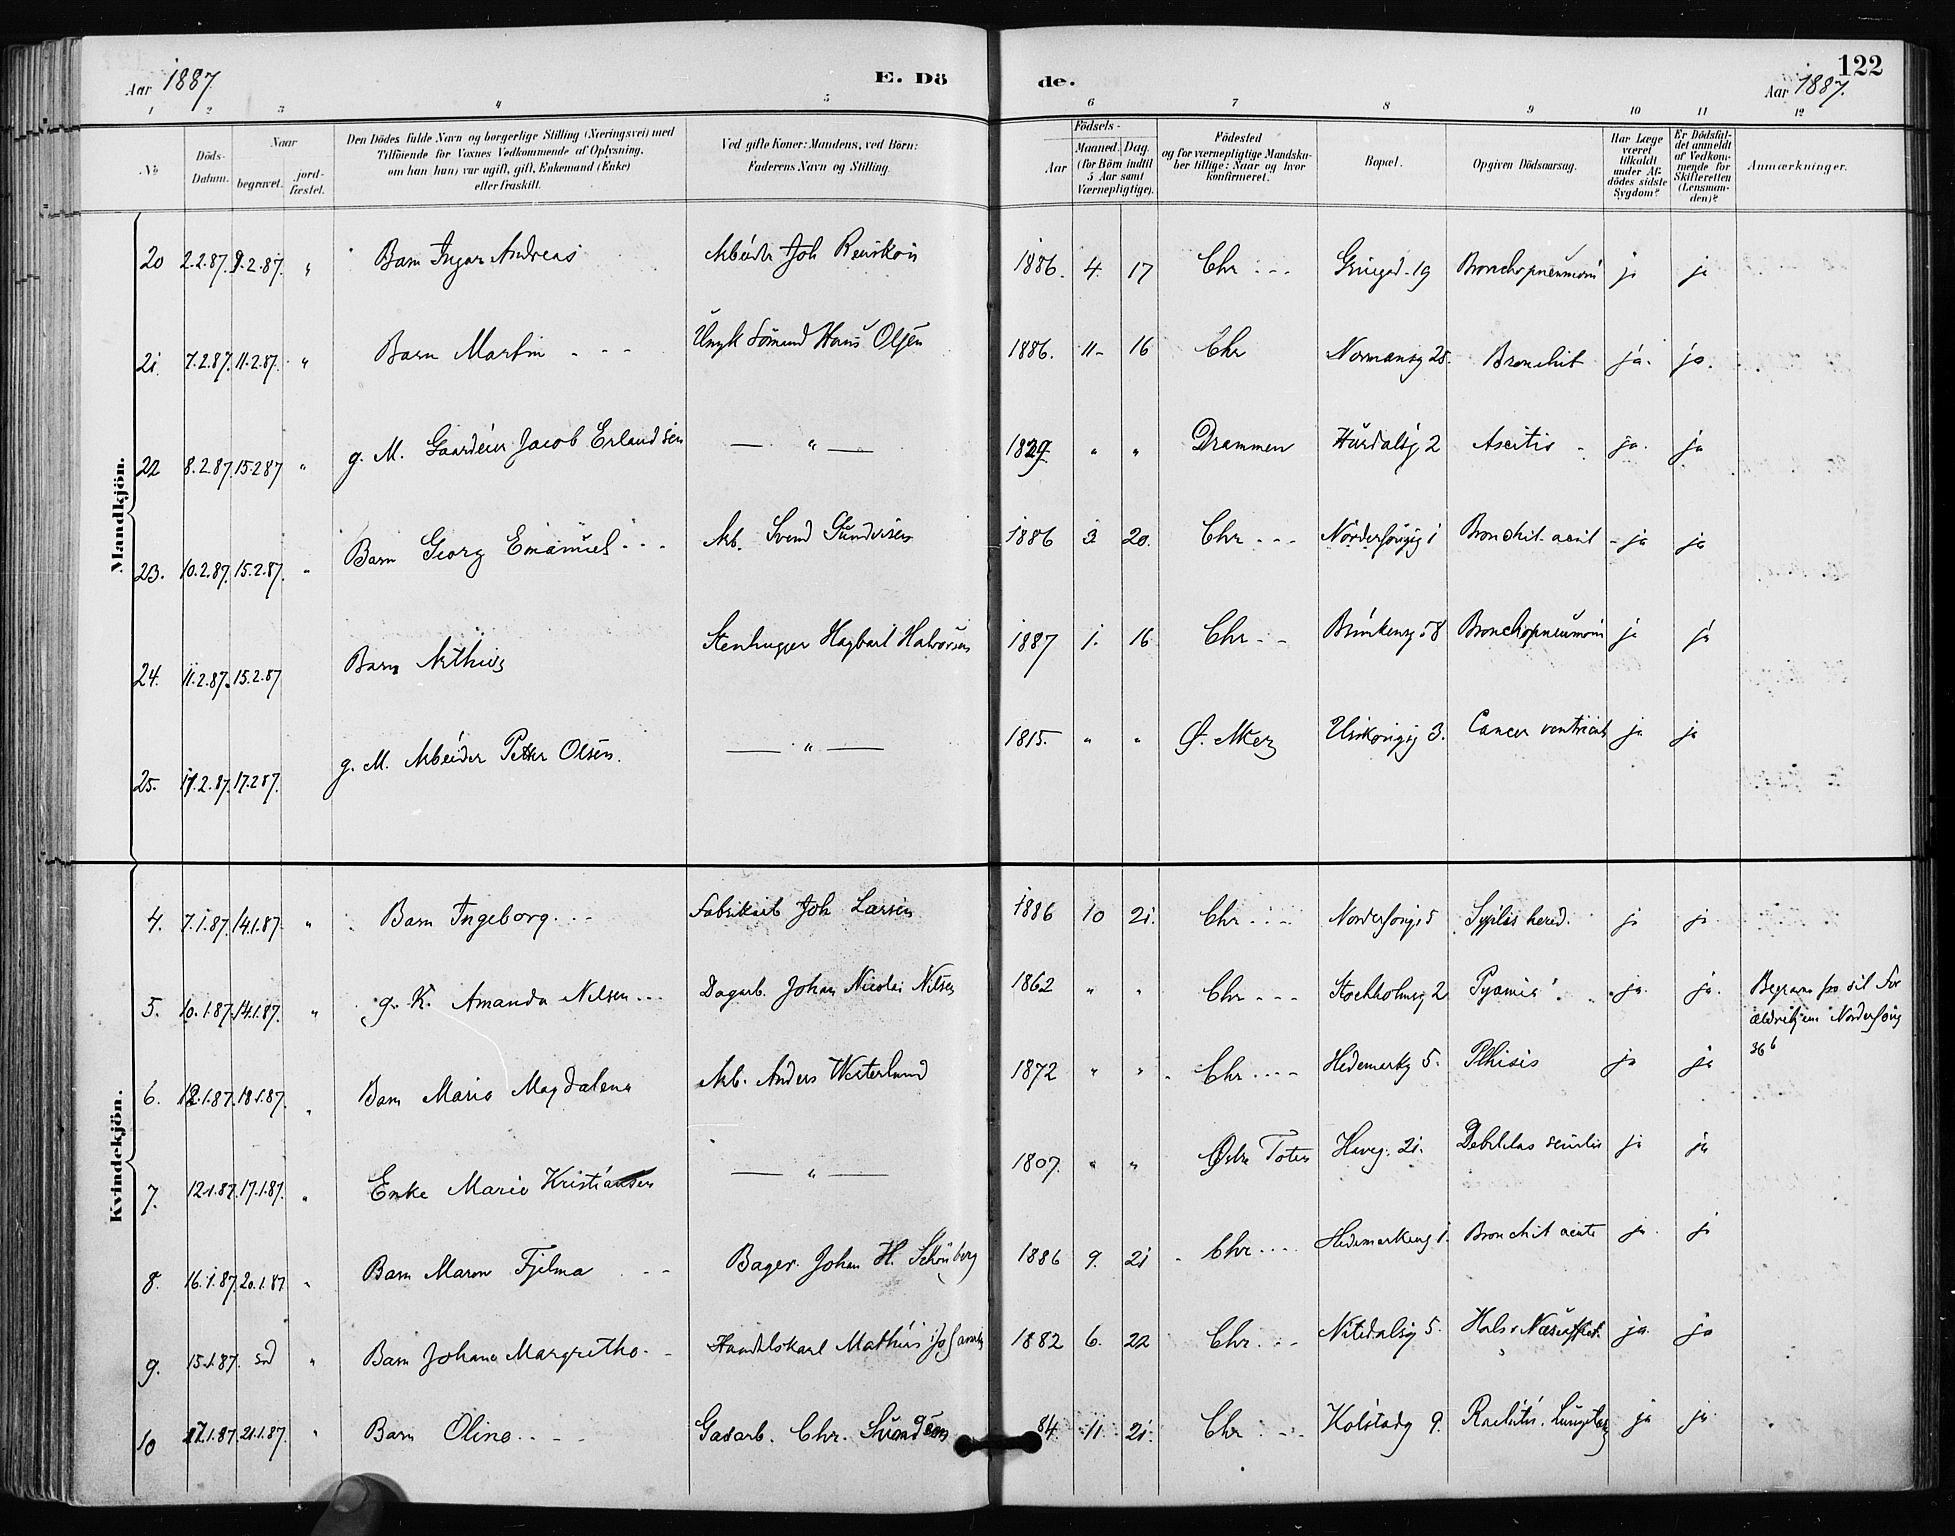 Aar 1887.
E. Dö
de.
122
Aar 1887.
1 2 3 4 5 6 7 8 9 10 11 12
No
Döds-Datum.
Naar
begravet.
jord-fæstet.
Den Dödes fulde Navn og borgerlige Stilling (Næringsvei) med
Tilföiende for Voxnes Vedkommende af Oplysning,
om han (hun) var ugift, gift, Enkemand (Enke)
eller fraskilt.
Ved gifte Koner: Mandens, ved Börn:
Faderens Navn og Stilling.
Födsels-
Aar
Maaned. Dag.
(for Börn indtil
5 Aar samt
Værnepligtige).
Födested
og for værnepligtige Mandska-
ber tillige: Naar og hvor
konfirmeret.
Bopæl.
Opgiven Dödsaarsag.
Har Læge
været
tilkaldt
under Af-
dödes sidste
Sygdom?
Er Dödsfal-
det anmeldt
af Vedkom-
mende for
Skifteretten
(Lensman-
den)?
Anmærkninger.
Mandkjön.
20 2.2.87. 9.2.87. " Barn Ingar Andreas Arbeider Joh 1886. 4. 17 Chr 19 Bronchopneumoni ja ja
21 7.2.87. 11.2.87. " Barn Martin Sömand Hans Olsen 1886. 11 16 Chr Normansg 25. Bronchit ja. ja.
22 8.2.87. 15.2.87 " g. M. Jacob Erlandsen — " — 1829 " " Drammen Hurdalsg 2 Ascitis ja. ja
23. 10.2.87. 15.2.87. " Barn Georg Emanuel Arb. Svend Gundersen 1886 3 20. Chr 1 Bronchit. acut ja ja
24. 11.2.87. 15.2.87 Barn Arthur Stenhugger Hagbart Halvorsen 1887 1. 16 Chr 58 Bronchopneumoni ja ja
25. 17.2.87. g. M. Arbeider Petter Olsen. — " — 1815. " " Ø. Aker 3. Cancer ventriculi ja ja
Kvindekjön.
4. 7.1.87. 14.1.87 " Barn Ingeborg Fabrikarb Joh Larsen 1886 10 21. Chr 5 hered. ja ja
5. 10.1.87. 14.1.87. " g. K. Amanda Nilsen Dagarb. Johan Nicolai Nilsen 1862 " " Chr Stockholmsg 2 Pyämi ja. ja. Begraves fra sit For
ældrehjem
36 b
6. 12.1.87. 18.1.87. " Barn Marie Magdalena Arb. Anders Westerlund 1872 " " Chr Hedemarksg 5. Phtisis ja ja
7. 12.1.87. 17.1.87. " Enke Marie Kristiansen — " — 1807. " " Østre Toten Haveg. 21. Debilitas senilis ja ja
8. 16.1.87. 20.1.87 " Barn Maren Fjelma Bager Johan H. Schönberg 1886 9. 21 Chr Hedemarkens g 1. Bronchit acuta ja ja
9. 15.1.87. " Barn Johane Margrethe Handelskarl Mathias Johansen 1882 6. 22 Chr. Nitedalsg 5. Hals ja. ja
10 17.1.87. 21.1.87. " Barn Oline Gadarb. Chr. Svendsen 84. 11. 21. Chr Kolstadg 9. Rachitis. ja ja